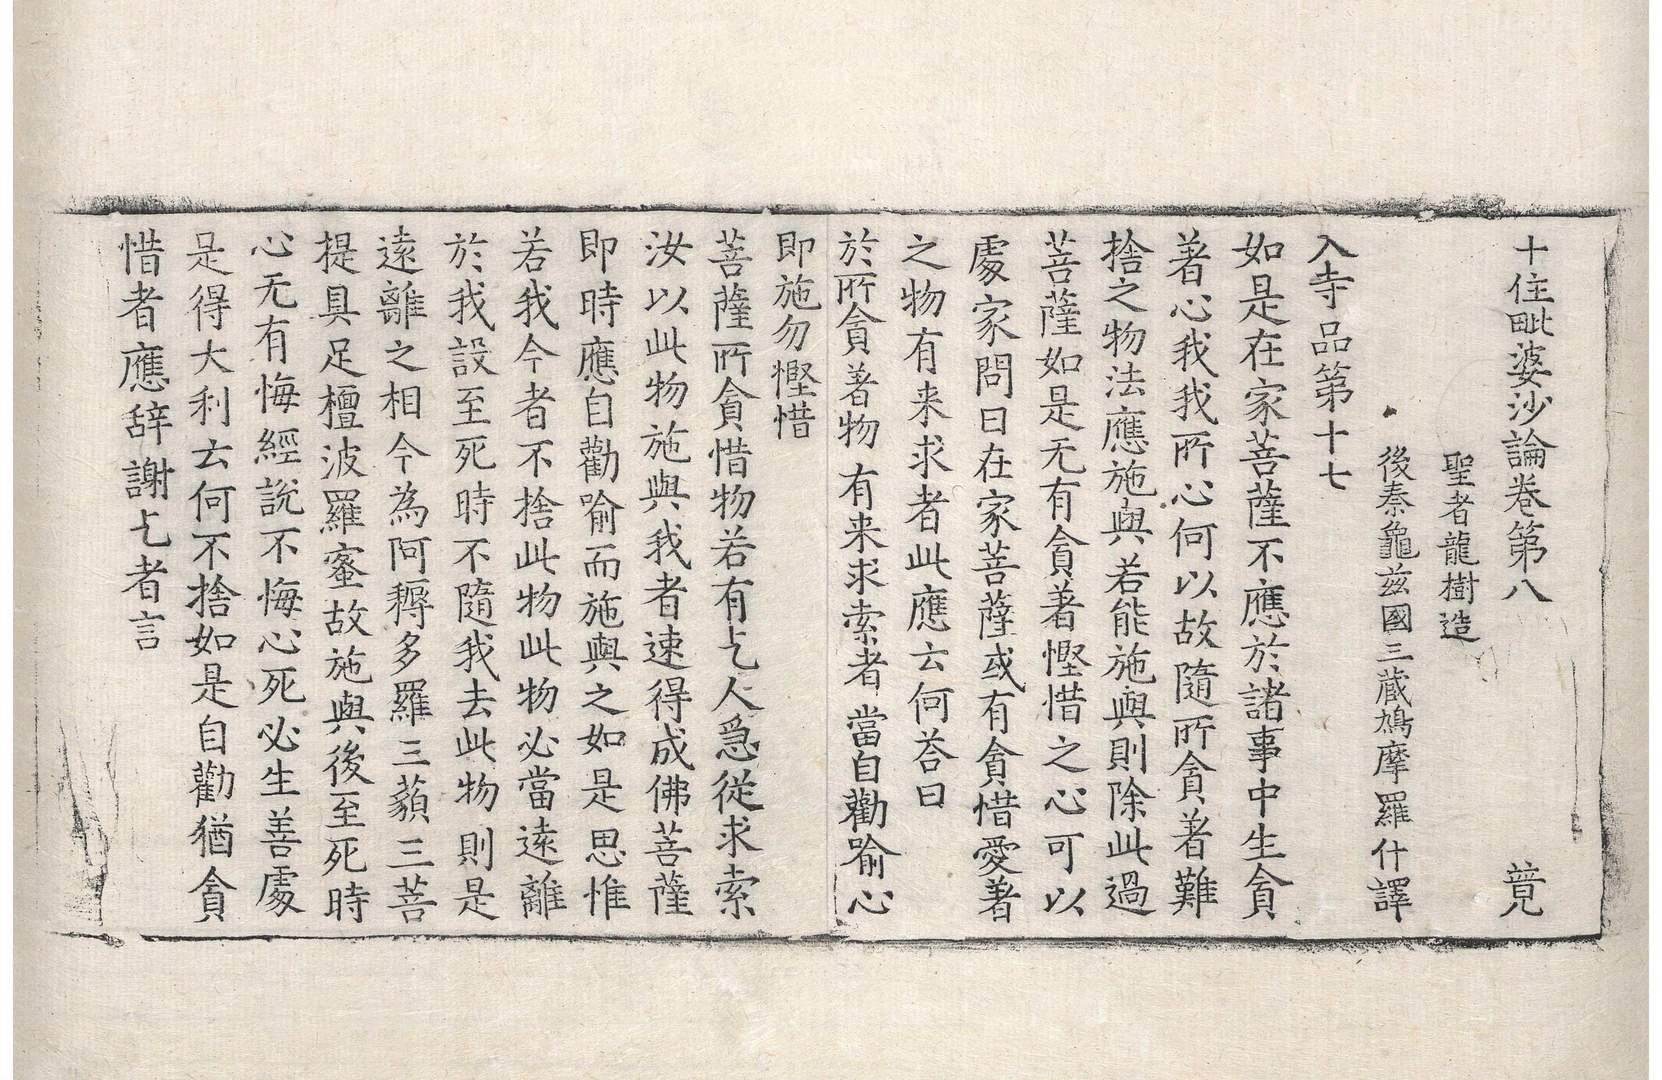 十住毗婆沙論卷第八 竟
聖者龍樹造
後秦龜兹國三藏鳩摩羅什譯
入寺品第十七
如是在家菩薩不應於諸事中生貪
著心我我所心何以故隨所貪著難
捨之物法應施與若能施與則除此過
菩薩如是无有貪著慳惜之心可以
處家問曰在家菩薩或有貪惜愛著
之物有来求者此應云何荅曰
於所貪著物 有来求索者 當自勸喻心
即施勿慳惜
菩薩所貪惜物若有乞人急従求索
汝以此物施與我者速得成佛菩薩
即時應自勸喻而施與之如是思惟
若我今者不捨此物此物必當遠離
於我設至死時不隨我去此物則是
遠離之相今為阿耨多羅三藐三菩
提具足檀波羅蜜故施與後至死時
心无有悔經說不悔心死必生善處
是得大利云何不捨如是自勸猶貪
惜者應辞謝乞者言